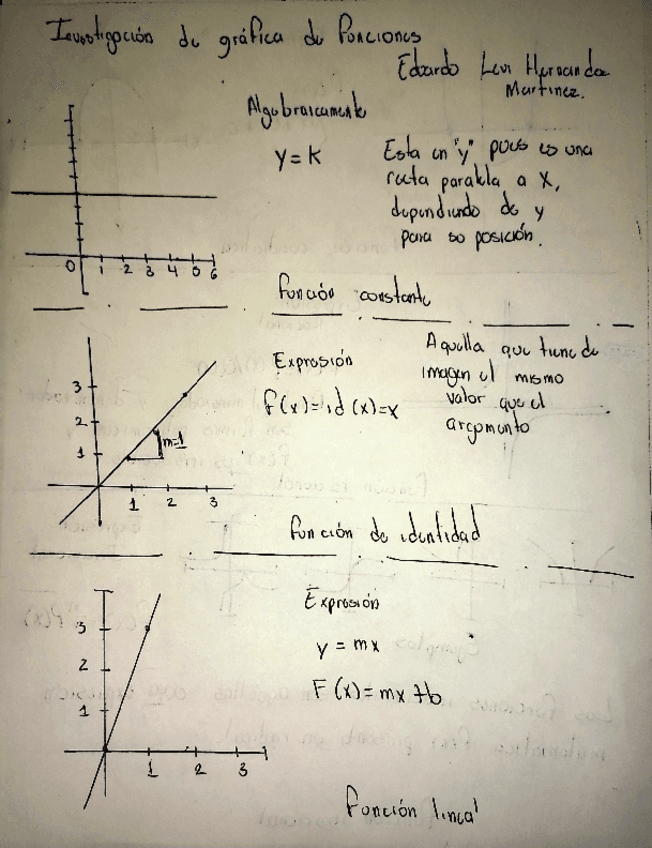 Investigación de gráfica de funciones
Eduardo Levi Hernandez
Martinez.
Algebraicamente
y = k
Esta en "y" pues es una
recta paralela a X,
dependiendo de y
para so posición.
0 1 2 3 4 5 6
función constante
Expresión
f(x)=id(x)=x
Aquella que tiene de
imagen el mismo
valor que el
argumento
3
2
1
m=1
1 2 3
función de identidad
Expresión
y = mx
F(x)=mx+b
3
2
1
1 2 3
función lineal